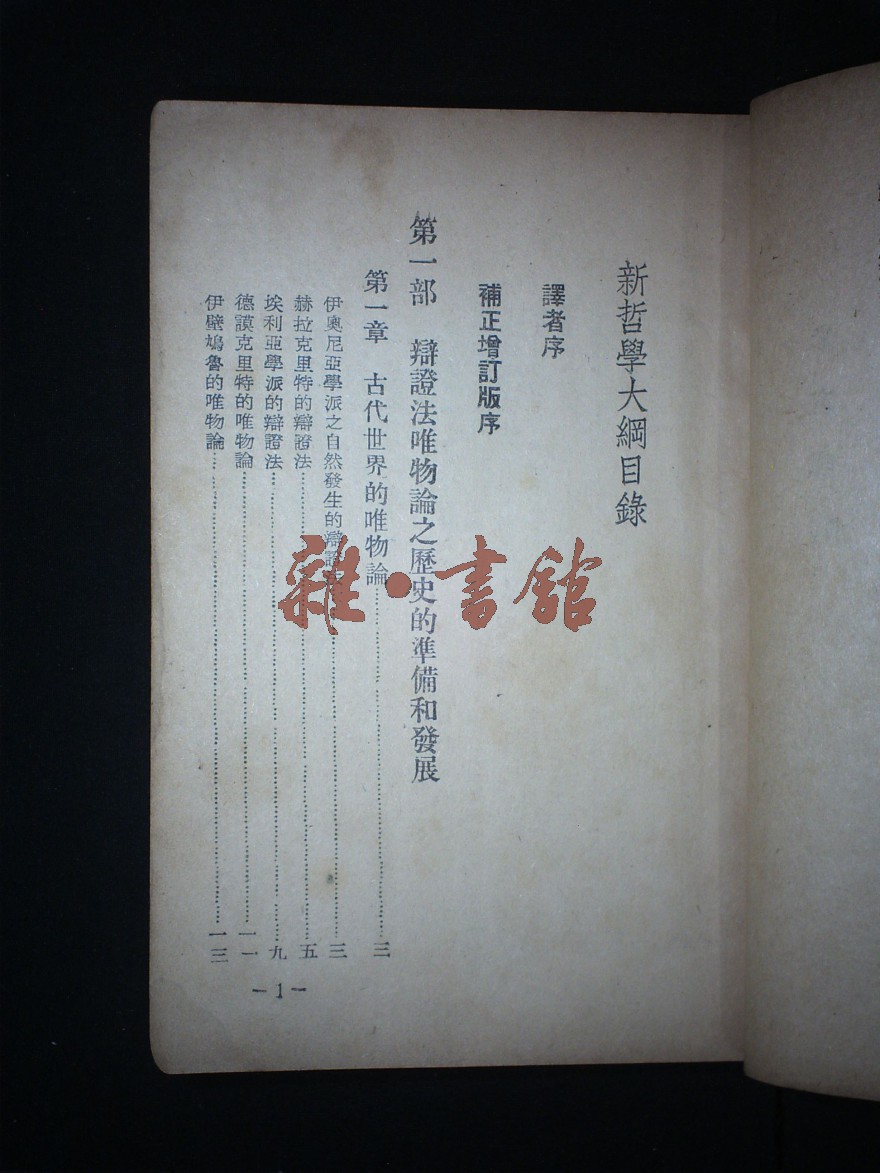 新哲學大綱目錄
譯者序
補正增訂版序
第一部　辯證法唯物論之歷史的準備和發展
第一章　古代世界的唯物論……三
伊奧尼亞學派之自然發生的辯證法……三
赫拉克里特的辯證法……五
埃利亞學派的辯證法……九
德謨克里特的唯物論……一一
伊壁鳩魯的唯物論……一三
—1—
雜·書館